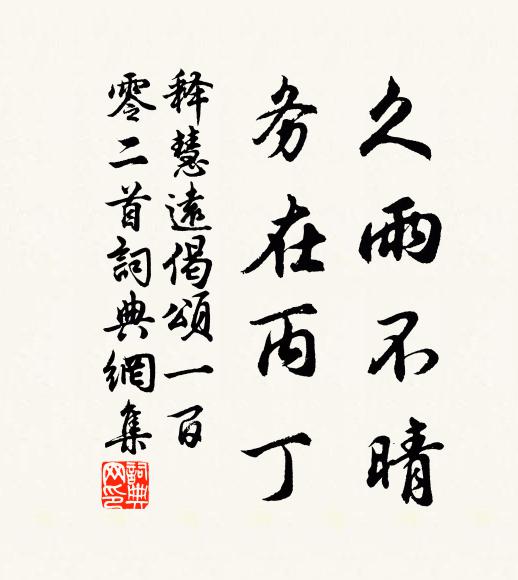 久雨不晴
务在丙丁
释慧遠偈頌一百
零二首詞典網集
詞典网印